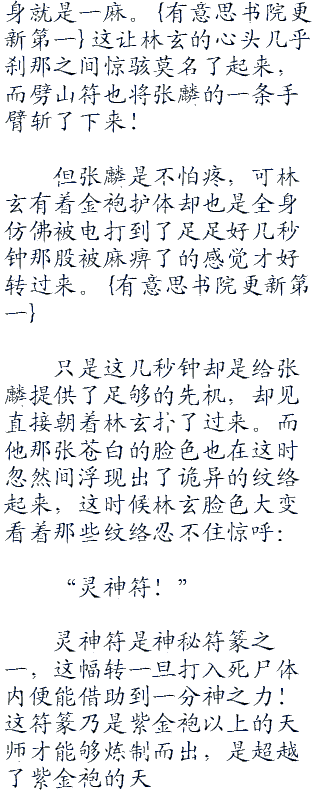 身就是一麻。{有意思书院更
新第一}这让林玄的心头几乎
刹那之间惊骇莫名了起来，
而劈山符也将张麟的一条手
臂斩了下来！
但张麟是不怕疼，可林
玄有着金袍护体却也是全身
仿佛被电打到了足足好几秒
钟那股被麻痹了的感觉才好
转过来。{有意思书院更新第
一}
只是这几秒钟却是给张
麟提供了足够的先机，却见
直接朝着林玄扑了过来。而
他那张苍白的脸色也在这时
忽然间浮现出了诡异的纹络
起来，这时候林玄脸色大变
看着那些纹络忍不住惊呼：
“灵神符！”
灵神符是神秘符篆之
一，这幅转一旦打入死尸体
内便能借助到一分神之力！
这符篆乃是紫金袍以上的天
师才能够炼制而出，是超越
了紫金袍的天